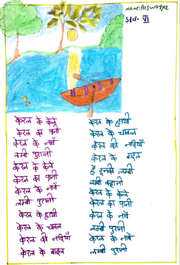 NAME: AISWARYA
Std- VI
केरल के केले
केरल का पानी
केरल के नावें
लम्बी पुरानी
केरल के केले
केरल का पानी
केरल के नावें
लम्बी पुरानी
केरल के हाथी
केरल के चावल
केरल की नदियाँ
केरल के बादल
केरल के हाथी
केरल के चावल
केरल की नदियाँ
केरल के बादल
है इनकी लम्बी
लम्बी कहानी
केरल के केले
केरल का पानी
केरल के नावें
लम्बी पुरानी
केरल के नावें
लम्बी पुरानी